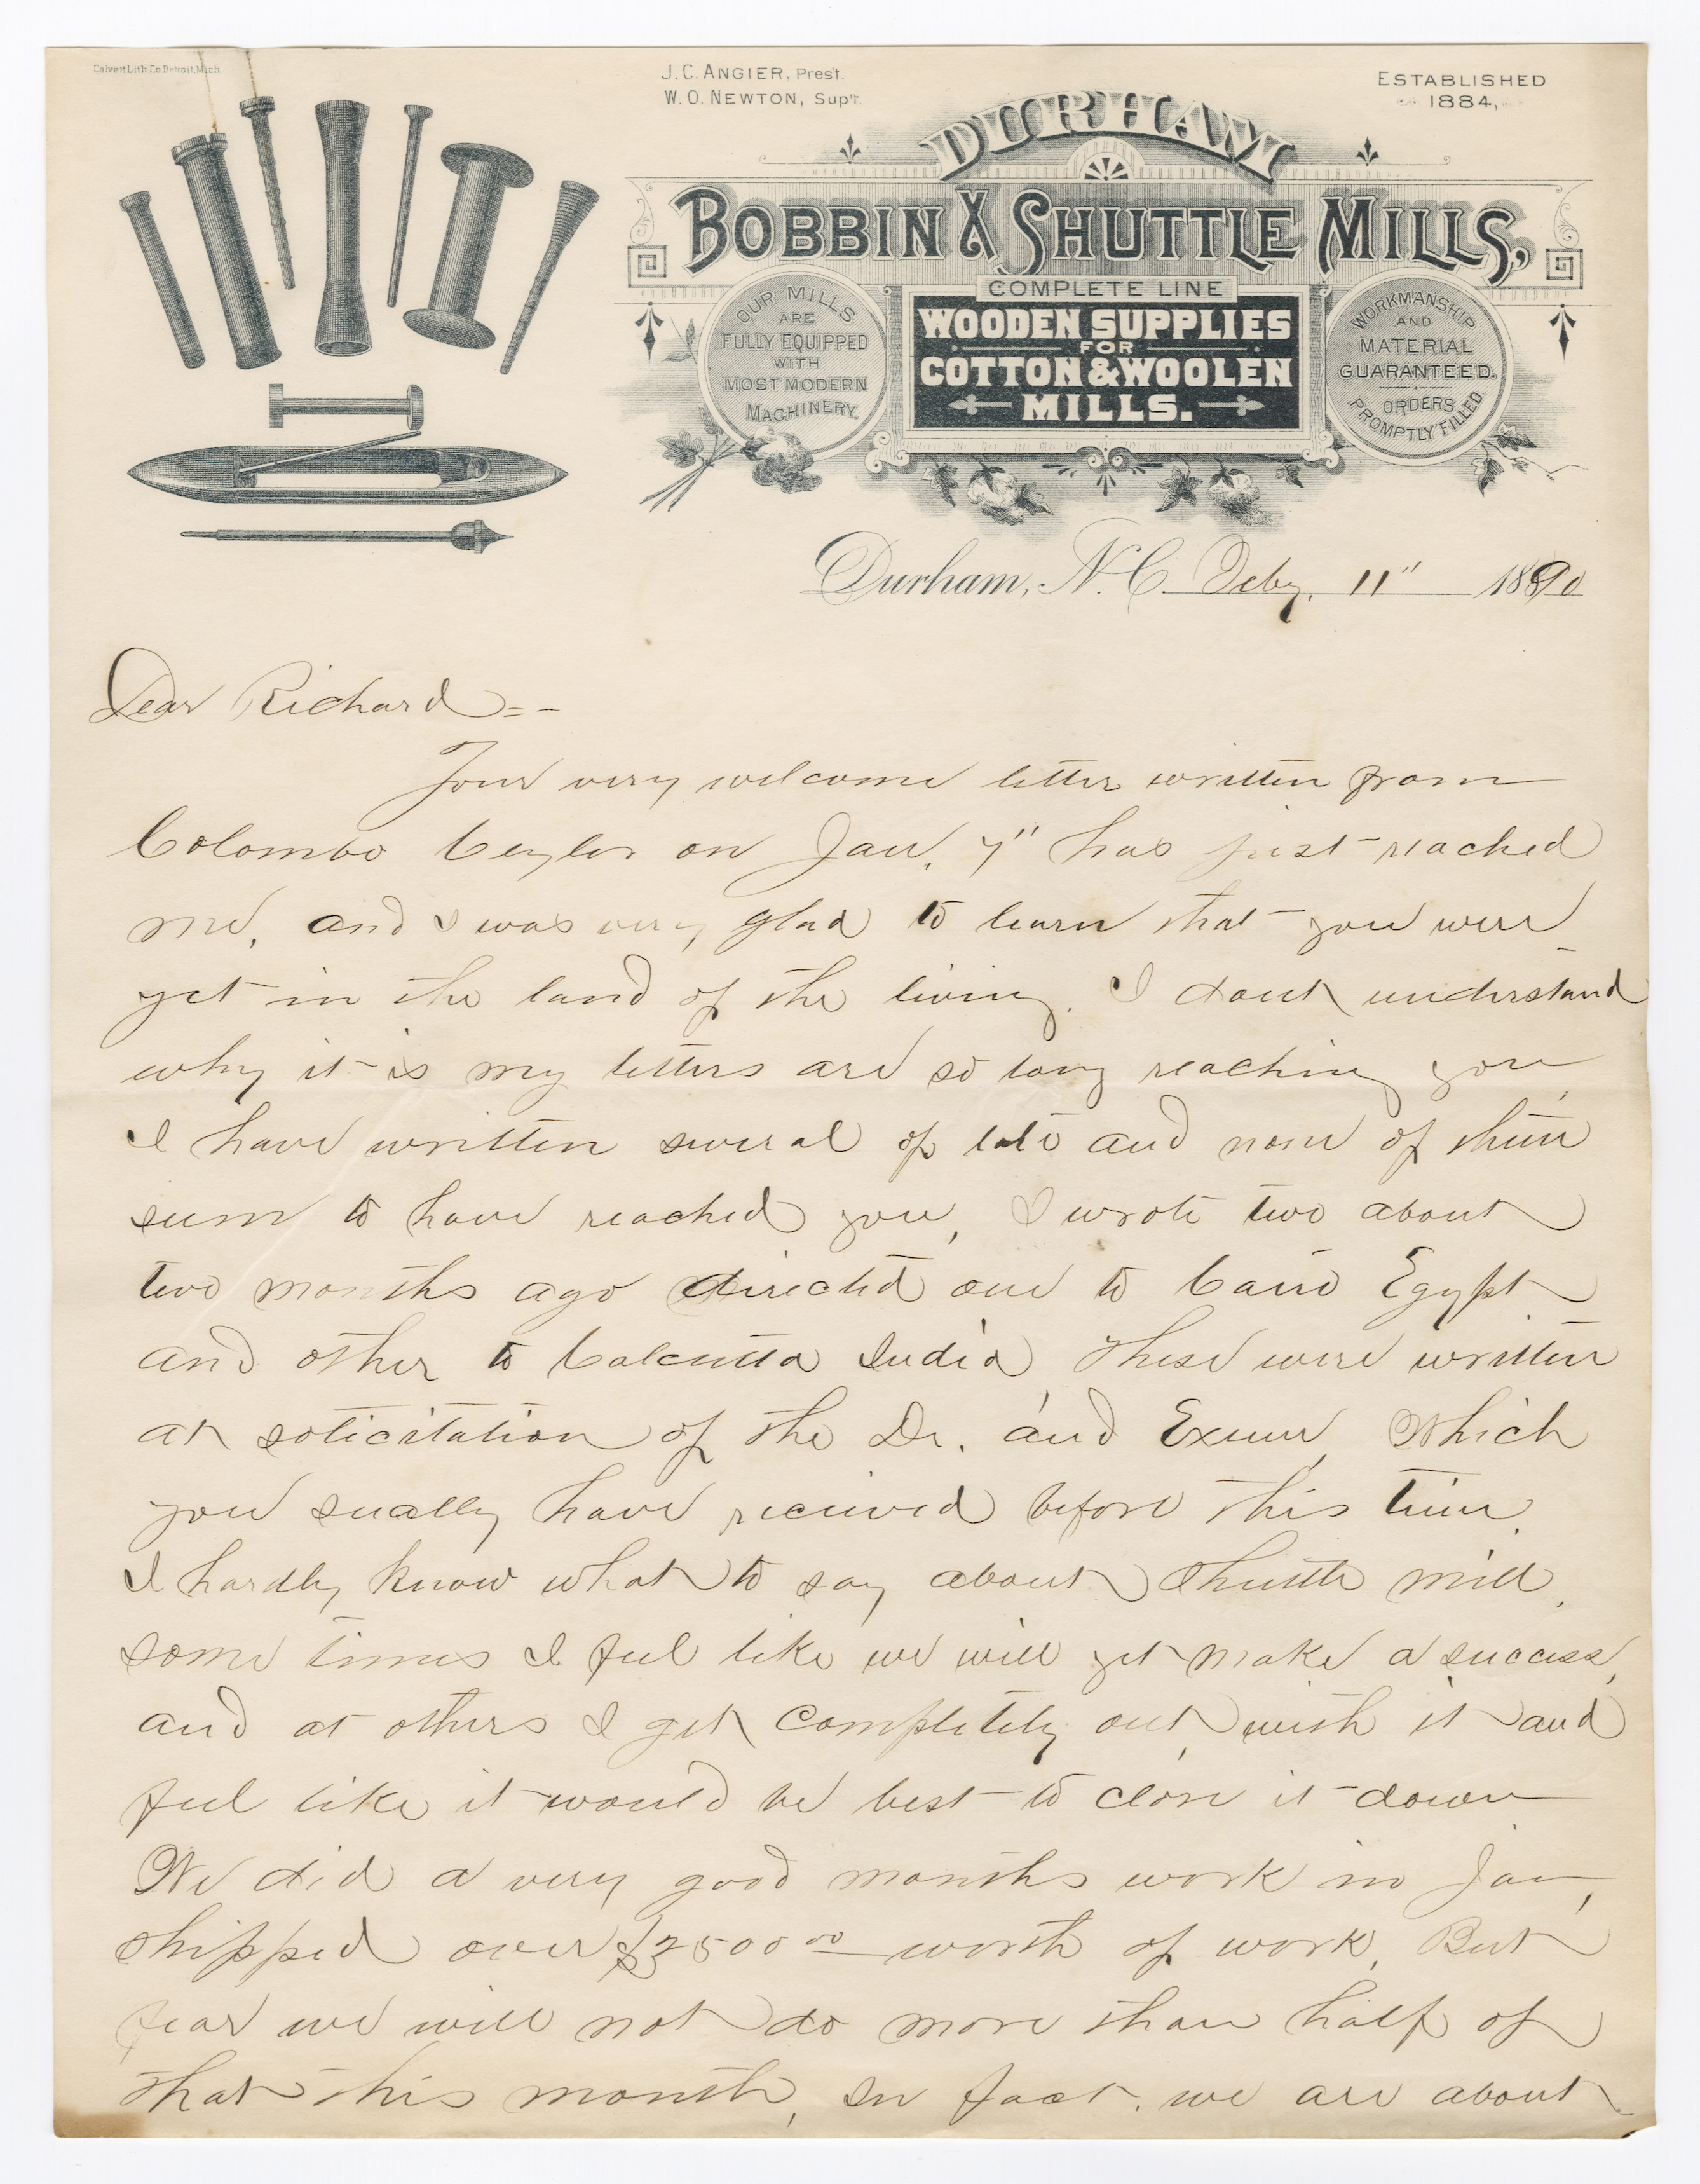 Calvert Lith. Co. Detroit, Mich.
J. C. ANGIER, Pres't.
W. O. NEWTON, Sup't.
ESTABLISHED
1884,
DURHAM
BOBBIN & SHUTTLE MILLS,
OUR MILLS
ARE
FULLY EQUIPPED
WITH
MOST MODERN
MACHINERY.
COMPLETE LINE
WOODEN SUPPLIES
FOR
COTTON & WOOLEN
MILLS.
WORKMANSHIP
AND
MATERIAL
GUARANTEED.
ORDERS
PROMPTLY FILLED
Durham, N. C. Feby. 11" 1890
Dear Richard =-
Your very welcome letter written from
Colombo Ceylon on Jan. 7" has just reached
me, and I was very glad to learn that you were
yet in the land of the living. I dont understand
why it is my letters are so long reaching you,
I have written several of late and none of them
seem to have reached you, I wrote two about
two months ago directed one to Cairo Egypt
and other to Calcutta India, these were written
at solicitation of the Dr. and Exum, Which
you sually have received before this time.
I hardly know what to say about Shuttle mill,
some times I feel like we will yet make a success,
and at others I get completely out, with it and
feel like it would be best to close it down
We did a very good months work in Jan,
shipped over $2500 00 worth of work, But
fear we will not do more than half of
that this month, In fact, we are about